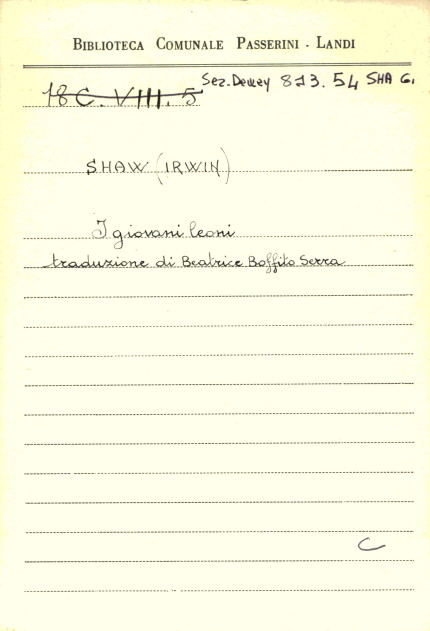 BIBLIOTECA COMUNALE PASSERINI - LANDI
Sez. Dewey 813.54 SHA G.
18 C. VIII. 5
SHAW (IRWIN)
I giovani leoni
traduzione di Beatrice Boffito Serra
C